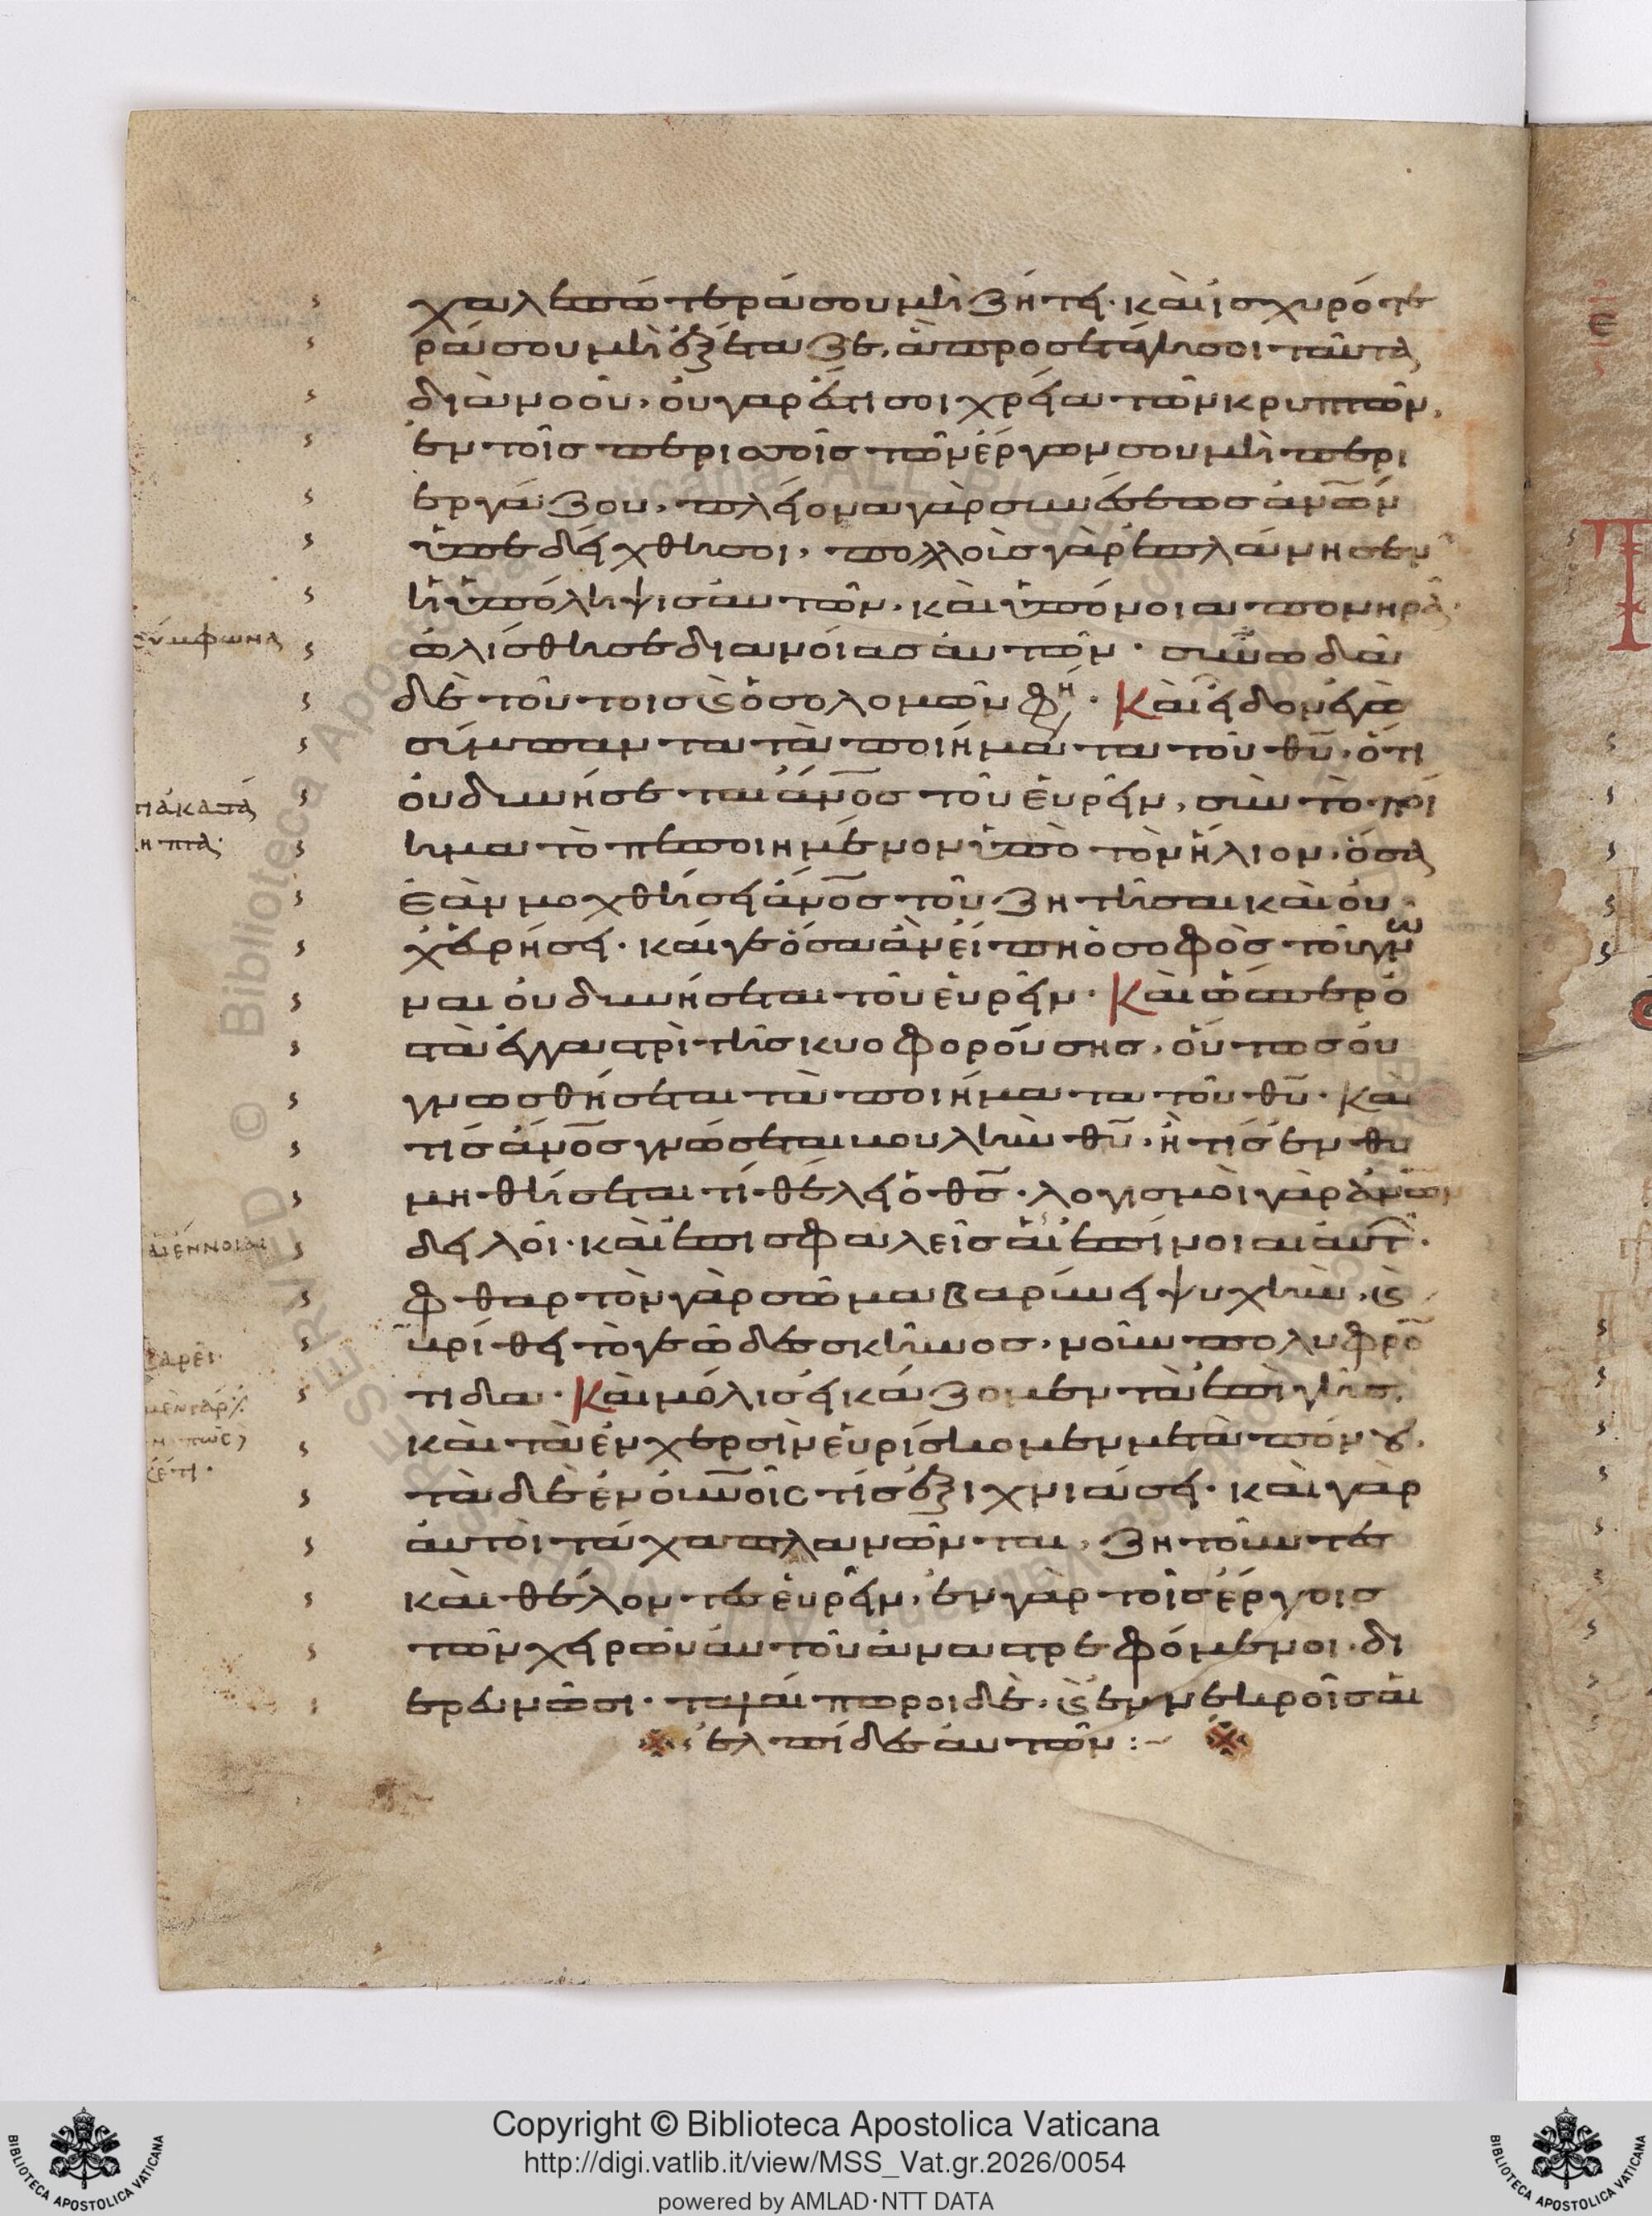 χαλεπώτερά σου μὴ ζήτει· καὶ ἰσχυρότε
ρά σου μὴ ἐξέταζε, ἃ προσετάγη σοι ταῦτα
διανοοῦ, οὐ γάρ ἐστι σοι χρεία τῶν κρυπτῶν,
ἐν τοῖς περισσοῖς τῶν ἔργων σου μὴ περι
εργάζου, πλείονα γὰρ συνέσεως ἀνῶν
ὑπεδείχθη σοι, πολλοὺς γὰρ ἐπλάνησεν
ἡ ὑπόληψις αὐτῶν, καὶ ὑπόνοια πονηρὰ
σύμφωνα
ὠλίσθησε διανοίας αὐτῶν· συνωδὰ
δὲ τούτοις κ ὁ σολομῶν φη· Καὶ εἶδον ἐγὼ
σύμπαντα τὰ ποιήματα τοῦ θῦ, ὅτι
ἀκατά
ληπτα·
οὐ δυνήσεται ἄνος τοῦ εὑρεῖν, σὺν τὸ ποί
ημα τὸ πεποιημένον ὑπὸ τὸν ἥλιον, ὅσα
ἐὰν μοχθήσει ἄνος τοῦ ζητῆσαι καὶ οὐ
χ εὑρήσει· καί γε ὅσα ἂν εἴπη ὁ σοφὸς τοῦ γνῶ
ναι οὐ δυνήσεται τοῦ εὑρεῖν· Καὶ ὥσπερ ὀ
στᾶ ἐν γαστρὶ τῆς κυοφορούσης, οὕτως οὐ
γνωσθήσεται τὰ ποιήματα τοῦ θῦ· Καὶ
τίς ἄνος γνώσεται βουλὴν θῦ, ἢ τίς ἐνθυ
μηθήσεται τί θέλει ὁ θς· λογισμοὶ γὰρ ἀνων
αἱ ἔννοιαι
δειλοί· καὶ ἐπισφαλεῖς αἱ ἐπίνοιαι αὐτ·
φθαρτὸν γὰρ σῶμα βαρύνει ψυχὴν, κ
βαρεῖ·
βρίθει τὸ γεῶδες σκῆνος, νοῦν πολυφρό
τιδα· Καὶ μόλις εἰκάζομεν τὰ ἐπὶ γῆς,
καὶ τὰ ἐν χερσὶν εὑρίσκομεν μετὰ πόνου,
τὰ δὲ ἐν οὐνοῖς τίς ἐξιχνιάσει· καὶ γὰρ
αὐτοὶ τάχα πλανῶνται, ζητοῦντες
καὶ θέλοντες εὑρεῖν, ἐν γὰρ τοῖς ἔργοις
τῶν χειρῶν αὐτοῦ ἀναστρεφόμενοι· δι
ερευνῶσι· ταλαίπωροι δὲ, κ ἐν νεκροῖς αἱ
ἐλπίδες αὐτῶν :~
Copyright © Biblioteca Apostolica Vaticana
http://digi.vatlib.it/view/MSS_Vat.gr.2026/0054
powered by AMLAD·NTT DATA
BIBLIOTECA APOSTOLICA VATICANA
BIBLIOTECA APOSTOLICA VATICANA